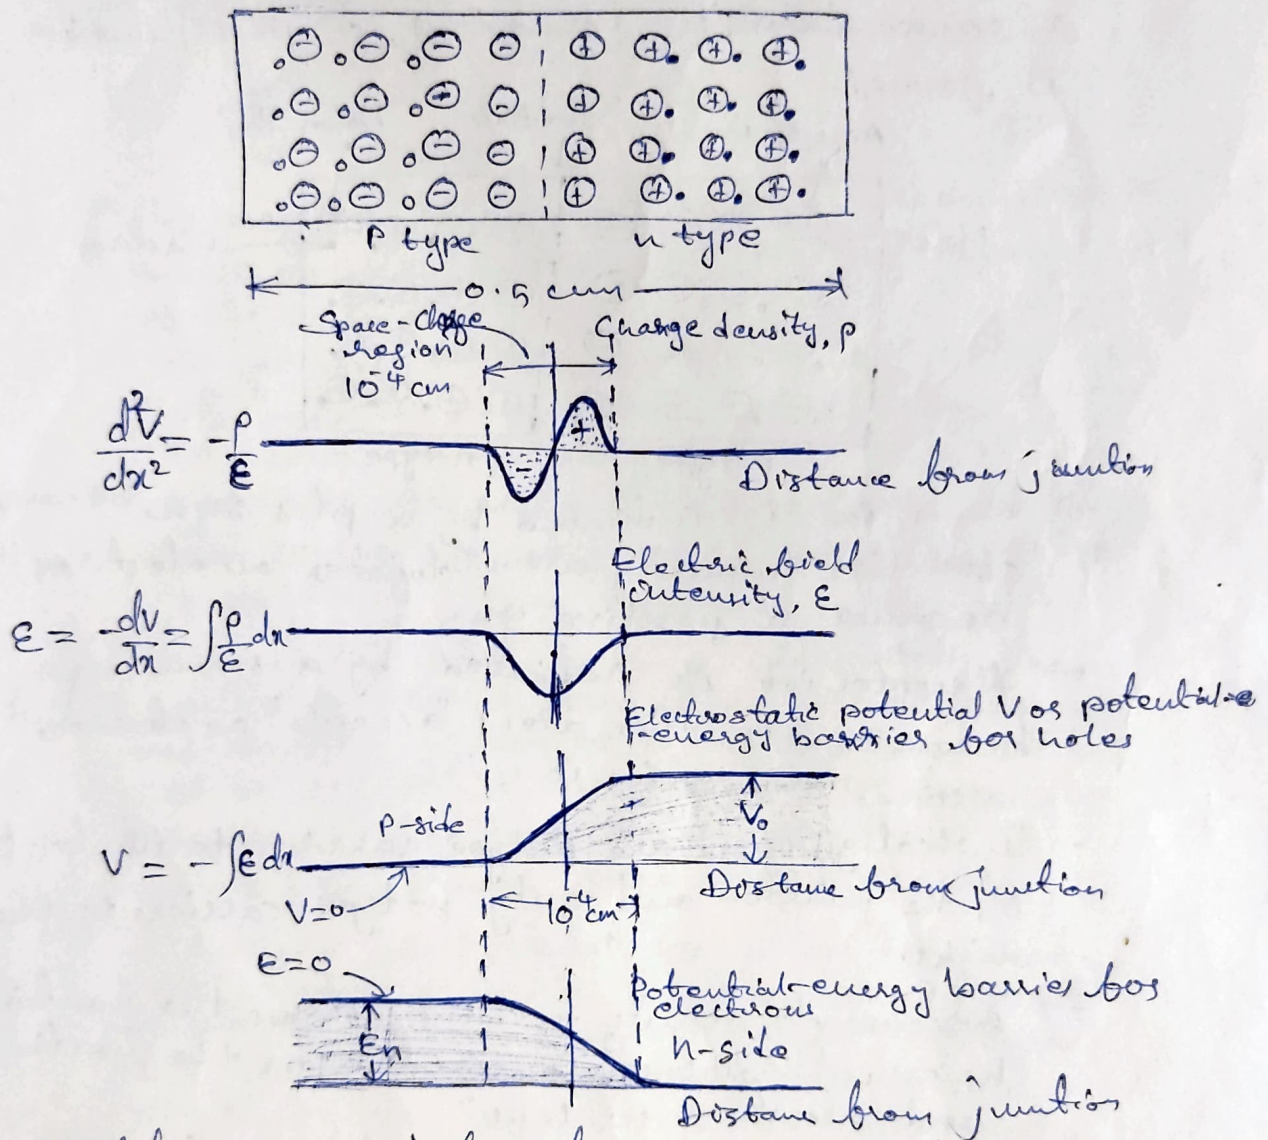 P type
n type
0.5 cm
Space-charge
region
10⁻⁴ cm
Charge density, ρ
d²V/dx² = -ρ/ε
Distance from junction
Electric field
intensity, ε
ε = -dv/dx = ∫ρ/ε dx
Electrostatic potential V or potential-e
-energy barrier for holes
P-side
V₀
V = -∫ε dx
Distane from junction
V=0
10⁻⁴ cm
ε=0
Potential-energy barrier for
electrons
En
n-side
Distane from junction